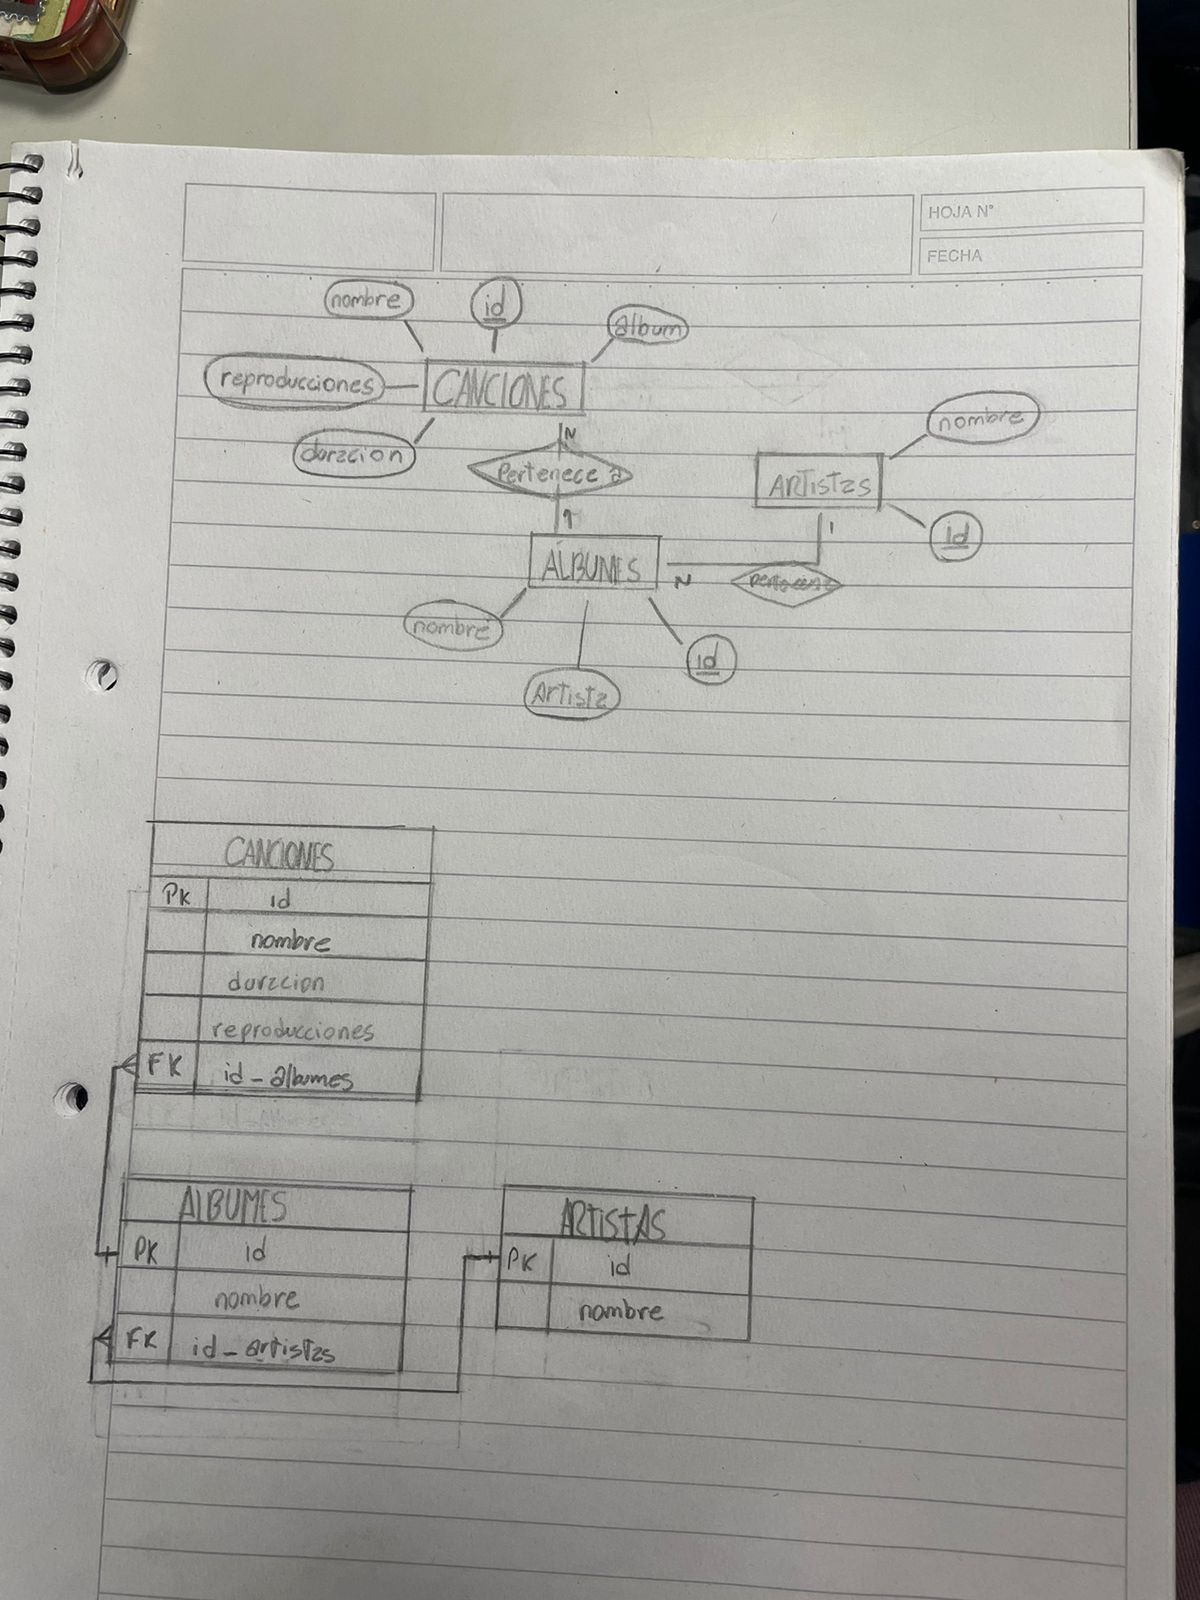 HOJA N°
FECHA
nombre
id
album
reproducciones
CANCIONES
duracion
N
Pertenece a
1
nombre
ARTISTAS
id
1
ALBUMES
N
nombre
id
Artista
CANCIONES
PK id
nombre
duracion
reproducciones
FK id_albumes
ALBUMES
PK id
nombre
FK id_artistas
ARTISTAS
PK id
nombre